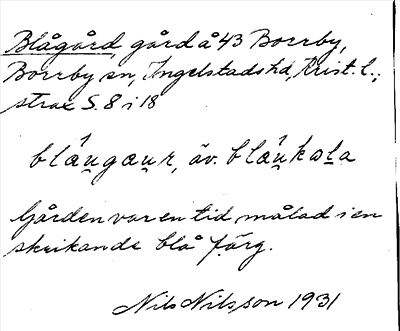 Blågård, gård å 43 Borrby,
Borrby sn, Ingelstads hd, Krist. l.;
strax S. 8 i 18
blau̯gau̯r, äv. blau̯kala
Gården var en tid målad i en
skrikande blå färg.
Nils Nilsson 1931